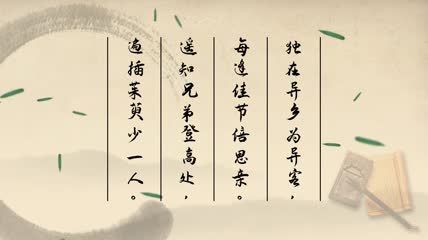 独在异乡为异客，
每逢佳节倍思亲。
遥知兄弟登高处，
遍插茱萸少一人。